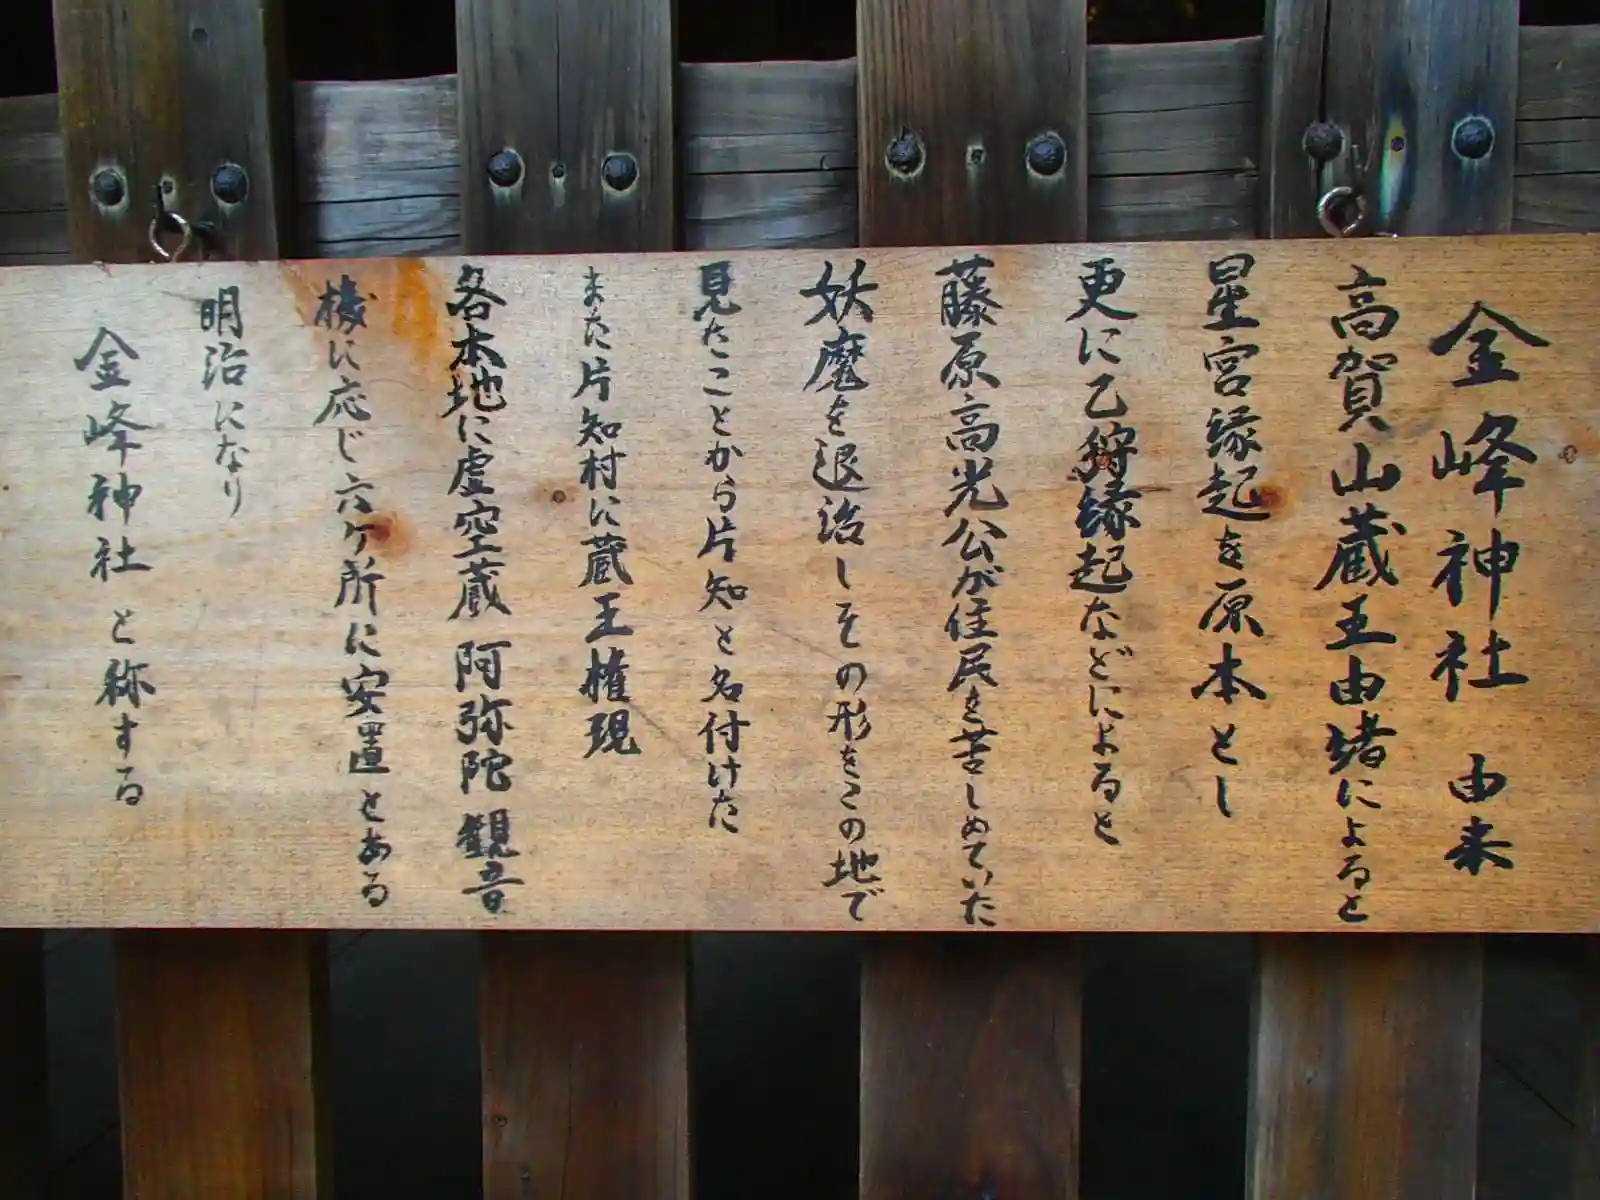 金峰神社 由来
高賀山蔵王由緒によると
星宮縁起を原本とし
更に乙狩縁起などによると
藤原高光公が住民を苦しめていた
妖魔を退治しその形をこの地で
見たことから片知と名付けた
また片知村に蔵王権現
各本地に虚空蔵 阿弥陀 観音
機に応じ六ケ所に安置とある
明治になり
金峰神社と称する